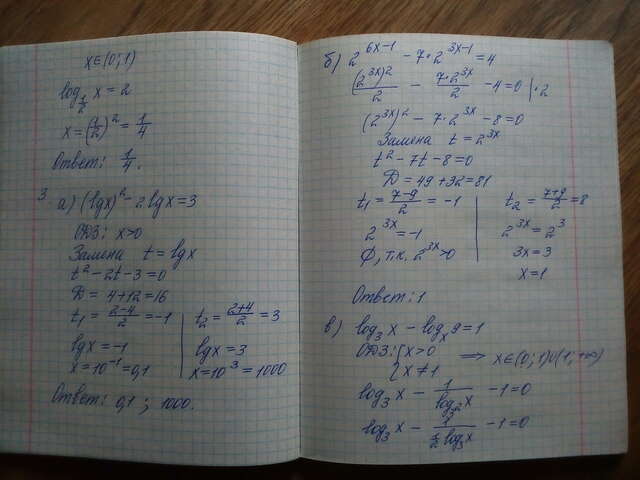 x∈(0;1)
log_{1/2} x = 2
x = (1/2)^2 = 1/4
Ответ: 1/4.
3. а) (lgx)^2 - 2lgx = 3
ОДЗ: x>0
Замена t = lgx
t^2 - 2t - 3 = 0
D = 4+12 = 16
t_1 = (2-4)/2 = -1 | t_2 = (2+4)/2 = 3
lgx = -1 | lgx = 3
x = 10^{-1} = 0,1 | x = 10^3 = 1000
Ответ: 0,1 ; 1000.
б) 2^{6x-1} - 7·2^{3x-1} = 4
(2^{3x})^2/2 - 7·2^{3x}/2 - 4 = 0 |·2
(2^{3x})^2 - 7·2^{3x} - 8 = 0
Замена t = 2^{3x}
t^2 - 7t - 8 = 0
D = 49+32 = 81
t_1 = (7-9)/2 = -1 | t_2 = (7+9)/2 = 8
2^{3x} = -1 | 2^{3x} = 2^3
∅, т.к. 2^{3x}>0 | 3x = 3
x = 1
Ответ: 1
в) log_3 x - log_x 9 = 1
ОДЗ: {x>0
{x≠1 ⟹ x∈(0;1)∪(1;+∞)
log_3 x - 1/(log_{3^2} x) - 1 = 0
log_3 x - 1/(1/2 log_3 x) - 1 = 0